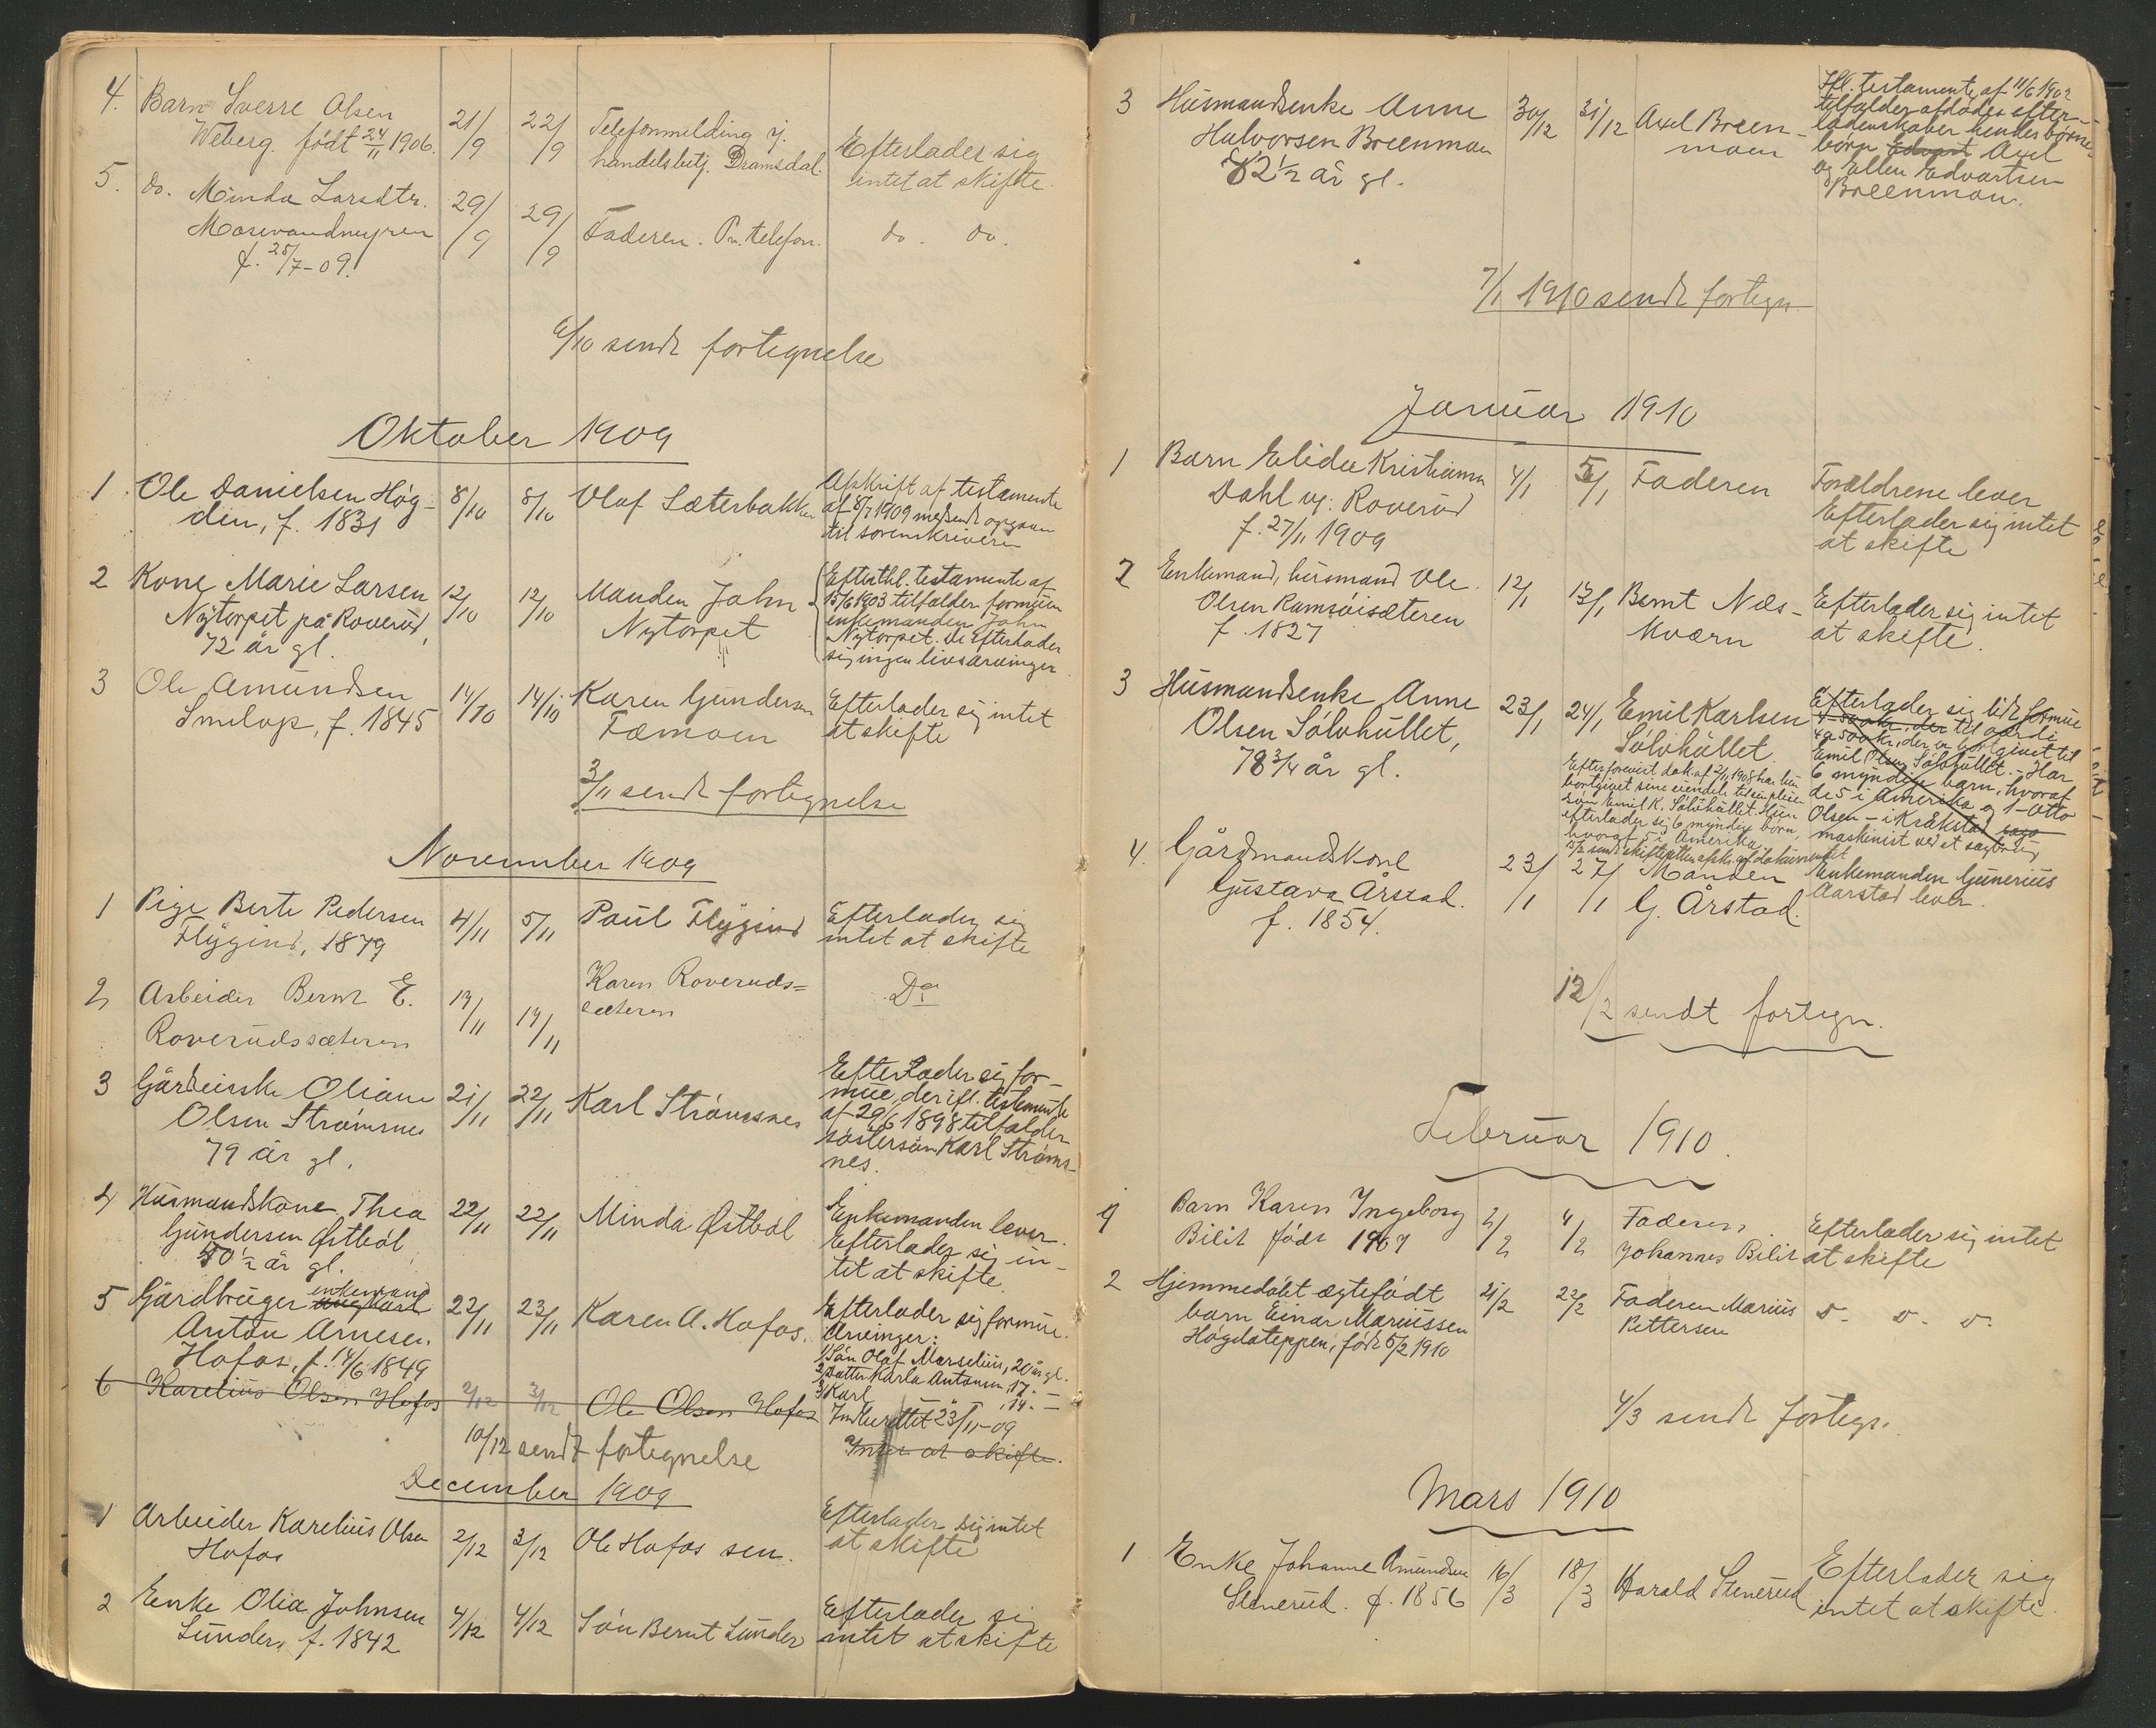 4. Barn Sverre Olsen 21/9 22/9 Telefonmelding
Weberg. født 24/11 1906. handelsbetj. Dramsdal. Efterlader sig
intet at skifte.
5. do. Minda Larsdtr. 29/9 29/9 Faderen. Pr. telefon. do. do.
Mosevandmyren
f. 25/7-09.
6/10 sendt fortegnelse
Oktober 1909
1 Ole Danielsen Høg- 8/10 8/10 Olaf Sæterbakken Afskrift af testamente
den, f. 1831 af 8/7 1909 medsendt opgaven
til sorenskriveren
2 Kone Marie Larsen 12/10 12/10 Manden John Efter thl. testamente af
Nytorpet på Roverud, Nytorpet 15/6 1903 tilfalder formuen
72 år gl. enkemanden John
Nytorpet. De efterlader
sig ingen livsarvinger.
3 Ole Amundsen 14/10 14/10 Karen Gundersen Efterlader sig intet
Smelop, f. 1845 Tæmoen at skifte
3/11 sendt fortegnelse
November 1909
1 Pige Berte Pedersen 4/11 5/11 Paul Flygind Efterlader sig
Flygind, 1879 intet at skifte
2 Arbeider Bernt E. 19/11 19/11 Karen Roveruds= Do
Roverudssæteren sæteren
3 Gårdeierske Oliane 21/11 22/11 Karl Strømsnes Efterlader sig for-
Olsen Strømsnes mue, der ifl. testamente
79 år gl. af 29/6 1898 tilfalder
søstersøn Karl Strøms-
nes.
4 Husmandskone Thea 22/11 22/11 Minda Østbøl Enkemanden lever.
Gundersen Østbøl Efterlader sig in-
50 1/2 år gl. tet at skifte.
5 Gårdbruger enkemand 22/11 23/11 Karen A. Hofos. Efterlader sig formue.
Anton Arnesen Arvinger:
Hofos, f. 14/6 1849 1) Søn Olaf Marselius, 20 år gl.
2) Datter Karla Antonie, 17. —
3) Karl , 14. —
6 Karelius Olsen Hofos 2/12 3/12 Ole Olsen Hofos Indberettet 23/11-09
10/12 sendt fortegnelse Intet at skifte.
December 1909
1 Arbeider Karelius Olsen 2/12 3/12 Ole Hofos sen. Efterlader sig intet
Hofos at skifte
2 Enke Olia Johnsen 4/12 4/12 Søn Bernt Lunder Efterlader sig
Lunder, f. 1842 intet at skifte
3 Husmandsenke Anne 30/12 31/12 Axel Breen- Ifl. testamente af 11/6 1902
Halvorsen Breenmoen moen tilfalder afdødes efter-
72 1/2 år gl. ladenskaber hendes børne-
børn Edvart Axel
og Ellen Edvartsen
Breenmoen.
7/1 1910 sendt fortegn.
Januar 1910
1 Barn Elida Kristiania 4/1 5/1 Faderen Forældrene lever
Dahl v. Roverud Efterlader sig intet
f. 27/11 1909 at skifte
2 Enkemand, husmand Ole 12/1 13/1 Bernt Næs- Efterlader sig intet
Olsen Ramsøisæteren kværn at skifte.
f. 1827
3 Husmandsenke Anne 23/1 24/1 Emil Karlsen Efterlader sig lidt formue
Olsen Sølvhullet, Sølvhullet. 4-500 kr. der til værdi
78 3/4 år gl. 4 a 500 kr, der er bortgivet til
Emil Olsen Sølvhullet. - Har
6 myndige barn, hvoraf
de 5 i Amerika og 1 - Otto
Olsen - i Kråkstad
maskinist ved et sagbrug
Efter forevist dok. af 2/11 1908 har hun
bortgivet sine eiendele til sin pleie-
søn Emil K. Sølvhullet. Hun
efterlader sig 6 myndige børn,
hvoraf 5 i Amerika.
4. Gårdmandskone 23/1 27/1 Manden Enkemanden Gunerius
Gustava Årstad. G. Årstad. Aarstad lever.
f. 1854.
12/2 sendt fortegn.
Februar 1910.
1 Barn Karen Ingeborg 2/2 4/2 Faderen Efterlader sig intet
Bilit født 1909 Johannes Bilit at skifte
2 Hjemmedøbt ægtefødt 21/2 22/2 Faderen Marius do. do. do.
barn Einar Mariussen Pettersen
Høgdateppen, født 5/2 1910
4/3 sendt fortegn.
Mars 1910
1 Enke Johanne Amundsen 16/3 18/3 Harald Stenerud Efterlader sig
Stenerud. f. 1856 intet at skifte.